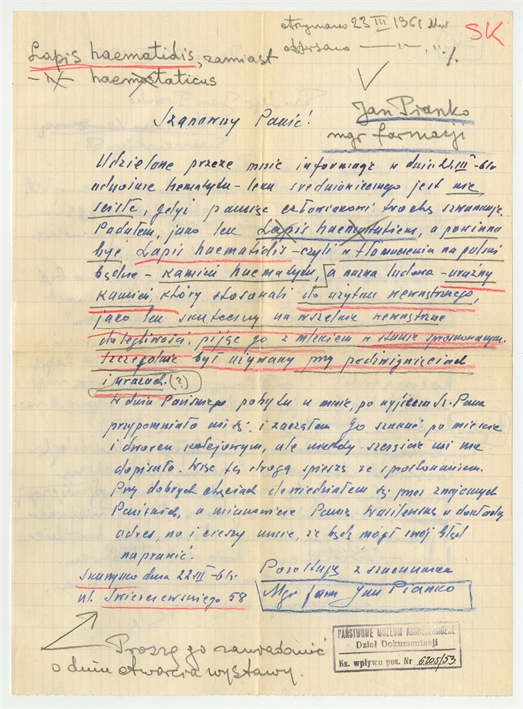 otrzymano 23 III 1961
SK
Lapis haematidis, zamiast
-„- haemostaticus
Jan Pianko
mgr farmacji
Szanowny Panie!
Udzielone przeze mnie informacje w dniu 21.III-61r
odnośnie hematytu - leku średniowiecznego jest nie
ścisłe, gdyż pamięć człowiekowi trochę szwankuje.
Podałem, jako lek Lapis, a powinno
być Lapis haematidis - czyli w tłomaczeniu na polski
będzie - kamień haematytu, a nazwa ludowa - uraźny
kamień, który stosowali do użytku wewnętrznego,
jako lek skuteczny na wszelkie wewnętrzne
dolegliwości, pijąc go z mlekiem w stanie sproszkowanym.
Szczególnie był używany przy podźwignięciach
i urazach. (?)
W dniu Pańskiego pobytu u mnie, po wyjściu Sz. Pana
przypomniało mi się i zacząłem Go szukać po mieście
i dworcu kolejowym, ale niestety szczęście mi nie
dopisało. Więc tą drogą spieszę ze sprostowaniem.
Przy dobrych chęciach dowiedziałem się przez znajomych
Pańskich, a mianowicie Panią Wasilewską o dokładny
adres, no i cieszy mnie, że będę mógł swój błąd
naprawić.
Pozostaję z szacunkiem
Mgr farm Jan Pianko
dnia 22-III-61r.
ul. Świerczewskiego 58
Proszę go zawiadomić
o dniu otwarcia wystawy.
PAŃSTWOWE MUZEUM ARCHEOLOGICZNE
Dział Dokumentacji
Ks. wpływu poz. Nr 6205/53